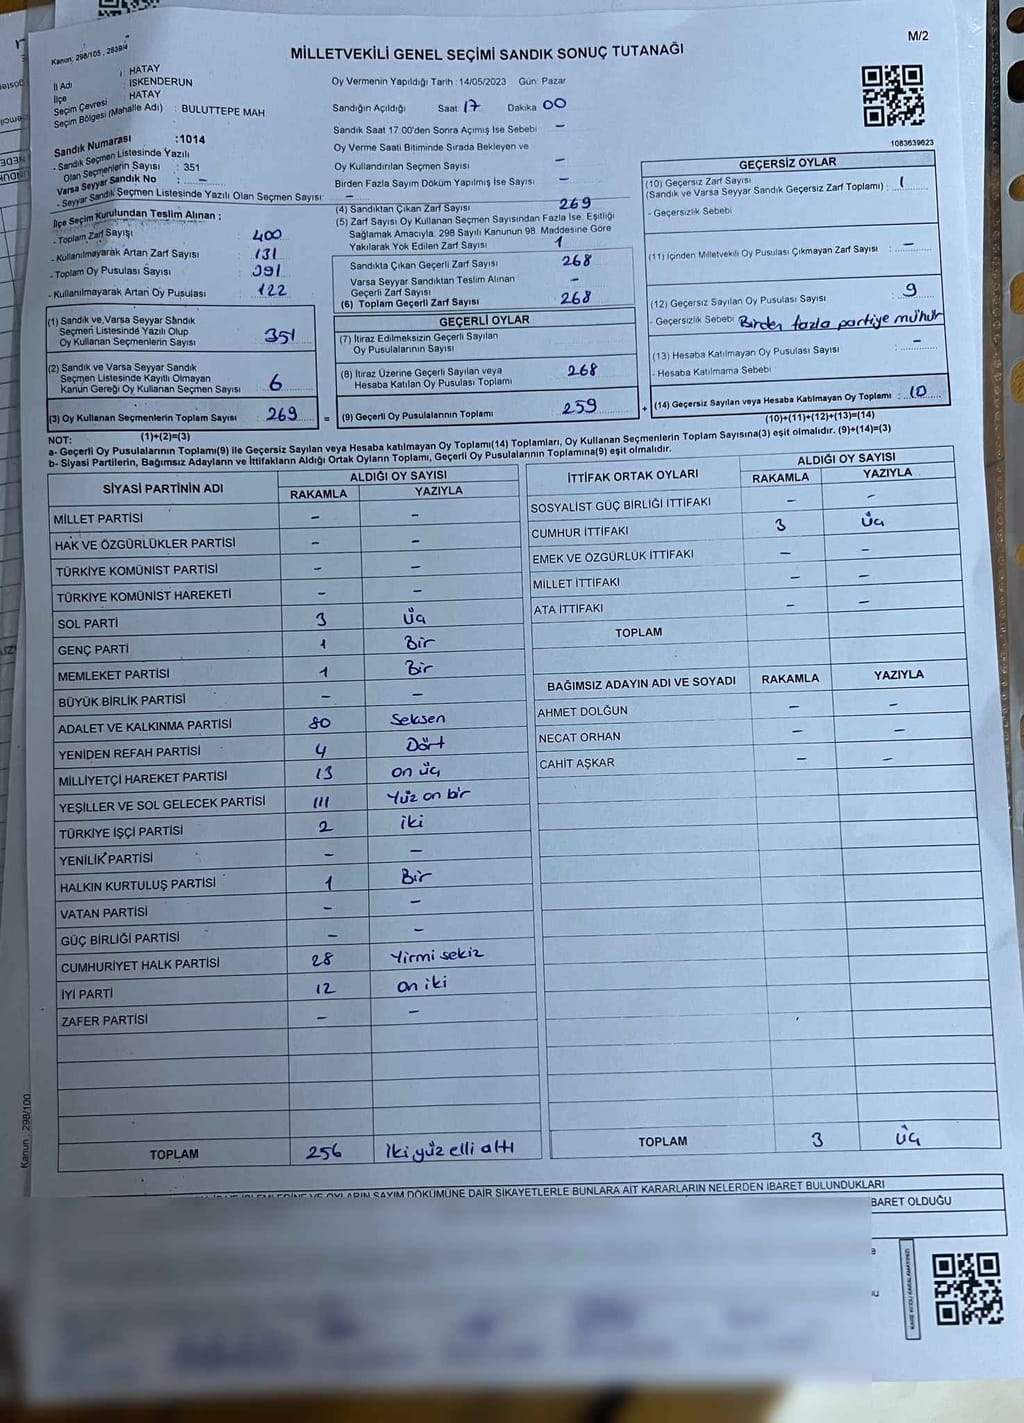 M/2
Kanun: 298/105 , 2839/4
MİLLETVEKİLİ GENEL SEÇİMİ SANDIK SONUÇ TUTANAĞI
İl Adı : HATAY
İlçe İSKENDERUN
Seçim Çevresi HATAY
Seçim Bölgesi (Mahalle Adı) : BULUTTEPE MAH
Sandık Numarası :1014
- Sandık Seçmen Listesinde Yazılı
Olan Seçmenlerin Sayısı : 351
Varsa Seyyar Sandık No : –
- Seyyar Sandık Seçmen Listesinde Yazılı Olan Seçmen Sayısı: –
Oy Vermenin Yapıldığı Tarih : 14/05/2023 Gün: Pazar
Sandığın Açıldığı Saat: 17 Dakika 00
Sandık Saat 17.00'den Sonra Açımış İse Sebebi –
Oy Verme Saati Bitiminde Sırada Bekleyen ve
Oy Kullandırılan Seçmen Sayısı –
Birden Fazla Sayım Döküm Yapılmış İse Sayısı –
1083639623
İlçe Seçim Kurulundan Teslim Alınan ;
- Toplam Zarf Sayışı : 400
- Kullanılmayarak Artan Zarf Sayısı : 131
- Toplam Oy Pusulası Sayısı : 391
- Kullanılmayarak Artan Oy Pusulası : 122
(1) Sandık ve Varsa Seyyar Sandık
Seçmen Listesinde Yazılı Olup
Oy Kullanan Seçmenlerin Sayısı 351
(2) Sandık ve Varsa Seyyar Sandık
Seçmen Listesinde Kayıtlı Olmayan
Kanun Gereği Oy Kullanan Seçmen Sayısı 6
(3) Oy Kullanan Seçmenlerin Toplam Sayısı : 269 =
(1)+(2)=(3)
(4) Sandıktan Çıkan Zarf Sayısı 269
(5) Zarf Sayısı Oy Kullanan Seçmen Sayısından Fazla İse, Eşitliği
Sağlamak Amacıyla, 298 Sayılı Kanunun 98. Maddesine Göre
Yakılarak Yok Edilen Zarf Sayısı 1
Sandıkta Çıkan Geçerli Zarf Sayısı 268
Varsa Seyyar Sandıktan Teslim Alınan
Geçerli Zarf Sayısı –
(6) Toplam Geçerli Zarf Sayısı 268
GEÇERLİ OYLAR
(7) İtiraz Edilmeksizin Geçerli Sayılan
Oy Pusulalarının Sayısı
(8) İtiraz Üzerine Geçerli Sayılan veya
Hesaba Katılan Oy Pusulası Toplamı 268
(9) Geçerli Oy Pusulalarının Toplamı 259 +
GEÇERSİZ OYLAR
(10) Geçersiz Zarf Sayısı
(Sandık ve Varsa Seyyar Sandık Geçersiz Zarf Toplamı) : 1
- Geçersizlik Sebebi
(11) İçinden Milletvekili Oy Pusulası Çıkmayan Zarf Sayısı : –
(12) Geçersiz Sayılan Oy Pusulası Sayısı : 9
- Geçersizlik Sebebi Birden fazla partiye mühür
(13) Hesaba Katılmayan Oy Pusulası Sayısı : –
- Hesaba Katılmama Sebebi
(14) Geçersiz Sayılan veya Hesaba Katılmayan Oy Toplamı : 10
(10)+(11)+(12)+(13)=(14)
NOT:
a- Geçerli Oy Pusulalarının Toplamı(9) ile Geçersiz Sayılan veya Hesaba katılmayan Oy Toplamı(14) Toplamları, Oy Kullanan Seçmenlerin Toplam Sayısına(3) eşit olmalıdır. (9)+(14)=(3)
b- Siyasi Partilerin, Bağımsız Adayların ve İttifakların Aldığı Ortak Oyların Toplamı, Geçerli Oy Pusulalarının Toplamına(9) eşit olmalıdır.
SİYASİ PARTİNİN ADI ALDIĞI OY SAYISI
RAKAMLA YAZIYLA
MİLLET PARTİSİ – –
HAK VE ÖZGÜRLÜKLER PARTİSİ – –
TÜRKİYE KOMÜNİST PARTİSİ – –
TÜRKİYE KOMÜNİST HAREKETİ – –
SOL PARTİ 3 üç
GENÇ PARTİ 1 Bir
MEMLEKET PARTİSİ 1 Bir
BÜYÜK BİRLİK PARTİSİ – –
ADALET VE KALKINMA PARTİSİ 80 Seksen
YENİDEN REFAH PARTİSİ 4 Dört
MİLLİYETÇİ HAREKET PARTİSİ 13 on üç
YEŞİLLER VE SOL GELECEK PARTİSİ 111 Yüz on bir
TÜRKİYE İŞÇİ PARTİSİ 2 iki
YENİLİK PARTİSİ – –
HALKIN KURTULUŞ PARTİSİ 1 Bir
VATAN PARTİSİ – –
GÜÇ BİRLİĞİ PARTİSİ – –
CUMHURİYET HALK PARTİSİ 28 Yirmi sekiz
İYİ PARTİ 12 on iki
ZAFER PARTİSİ – –
TOPLAM 256 iki yüz elli altı
İTTİFAK ORTAK OYLARI ALDIĞI OY SAYISI
RAKAMLA YAZIYLA
SOSYALİST GÜÇ BİRLİĞİ İTTİFAKI – –
CUMHUR İTTİFAKI 3 üç
EMEK VE ÖZGÜRLÜK İTTİFAKI – –
MİLLET İTTİFAKI – –
ATA İTTİFAKI – –
TOPLAM
BAĞIMSIZ ADAYIN ADI VE SOYADI RAKAMLA YAZIYLA
AHMET DOLĞUN – –
NECAT ORHAN – –
CAHİT AŞKAR – –
TOPLAM 3 üç
Kanun : 298/100
VE OYLARIN SAYIM DÖKÜMÜNE DAİR ŞİKAYETLERLE BUNLARA AİT KARARLARIN NELERDEN İBARET BULUNDUKLARI
BARET OLDUĞU
KARE KODU KARALAMAYINIZ!